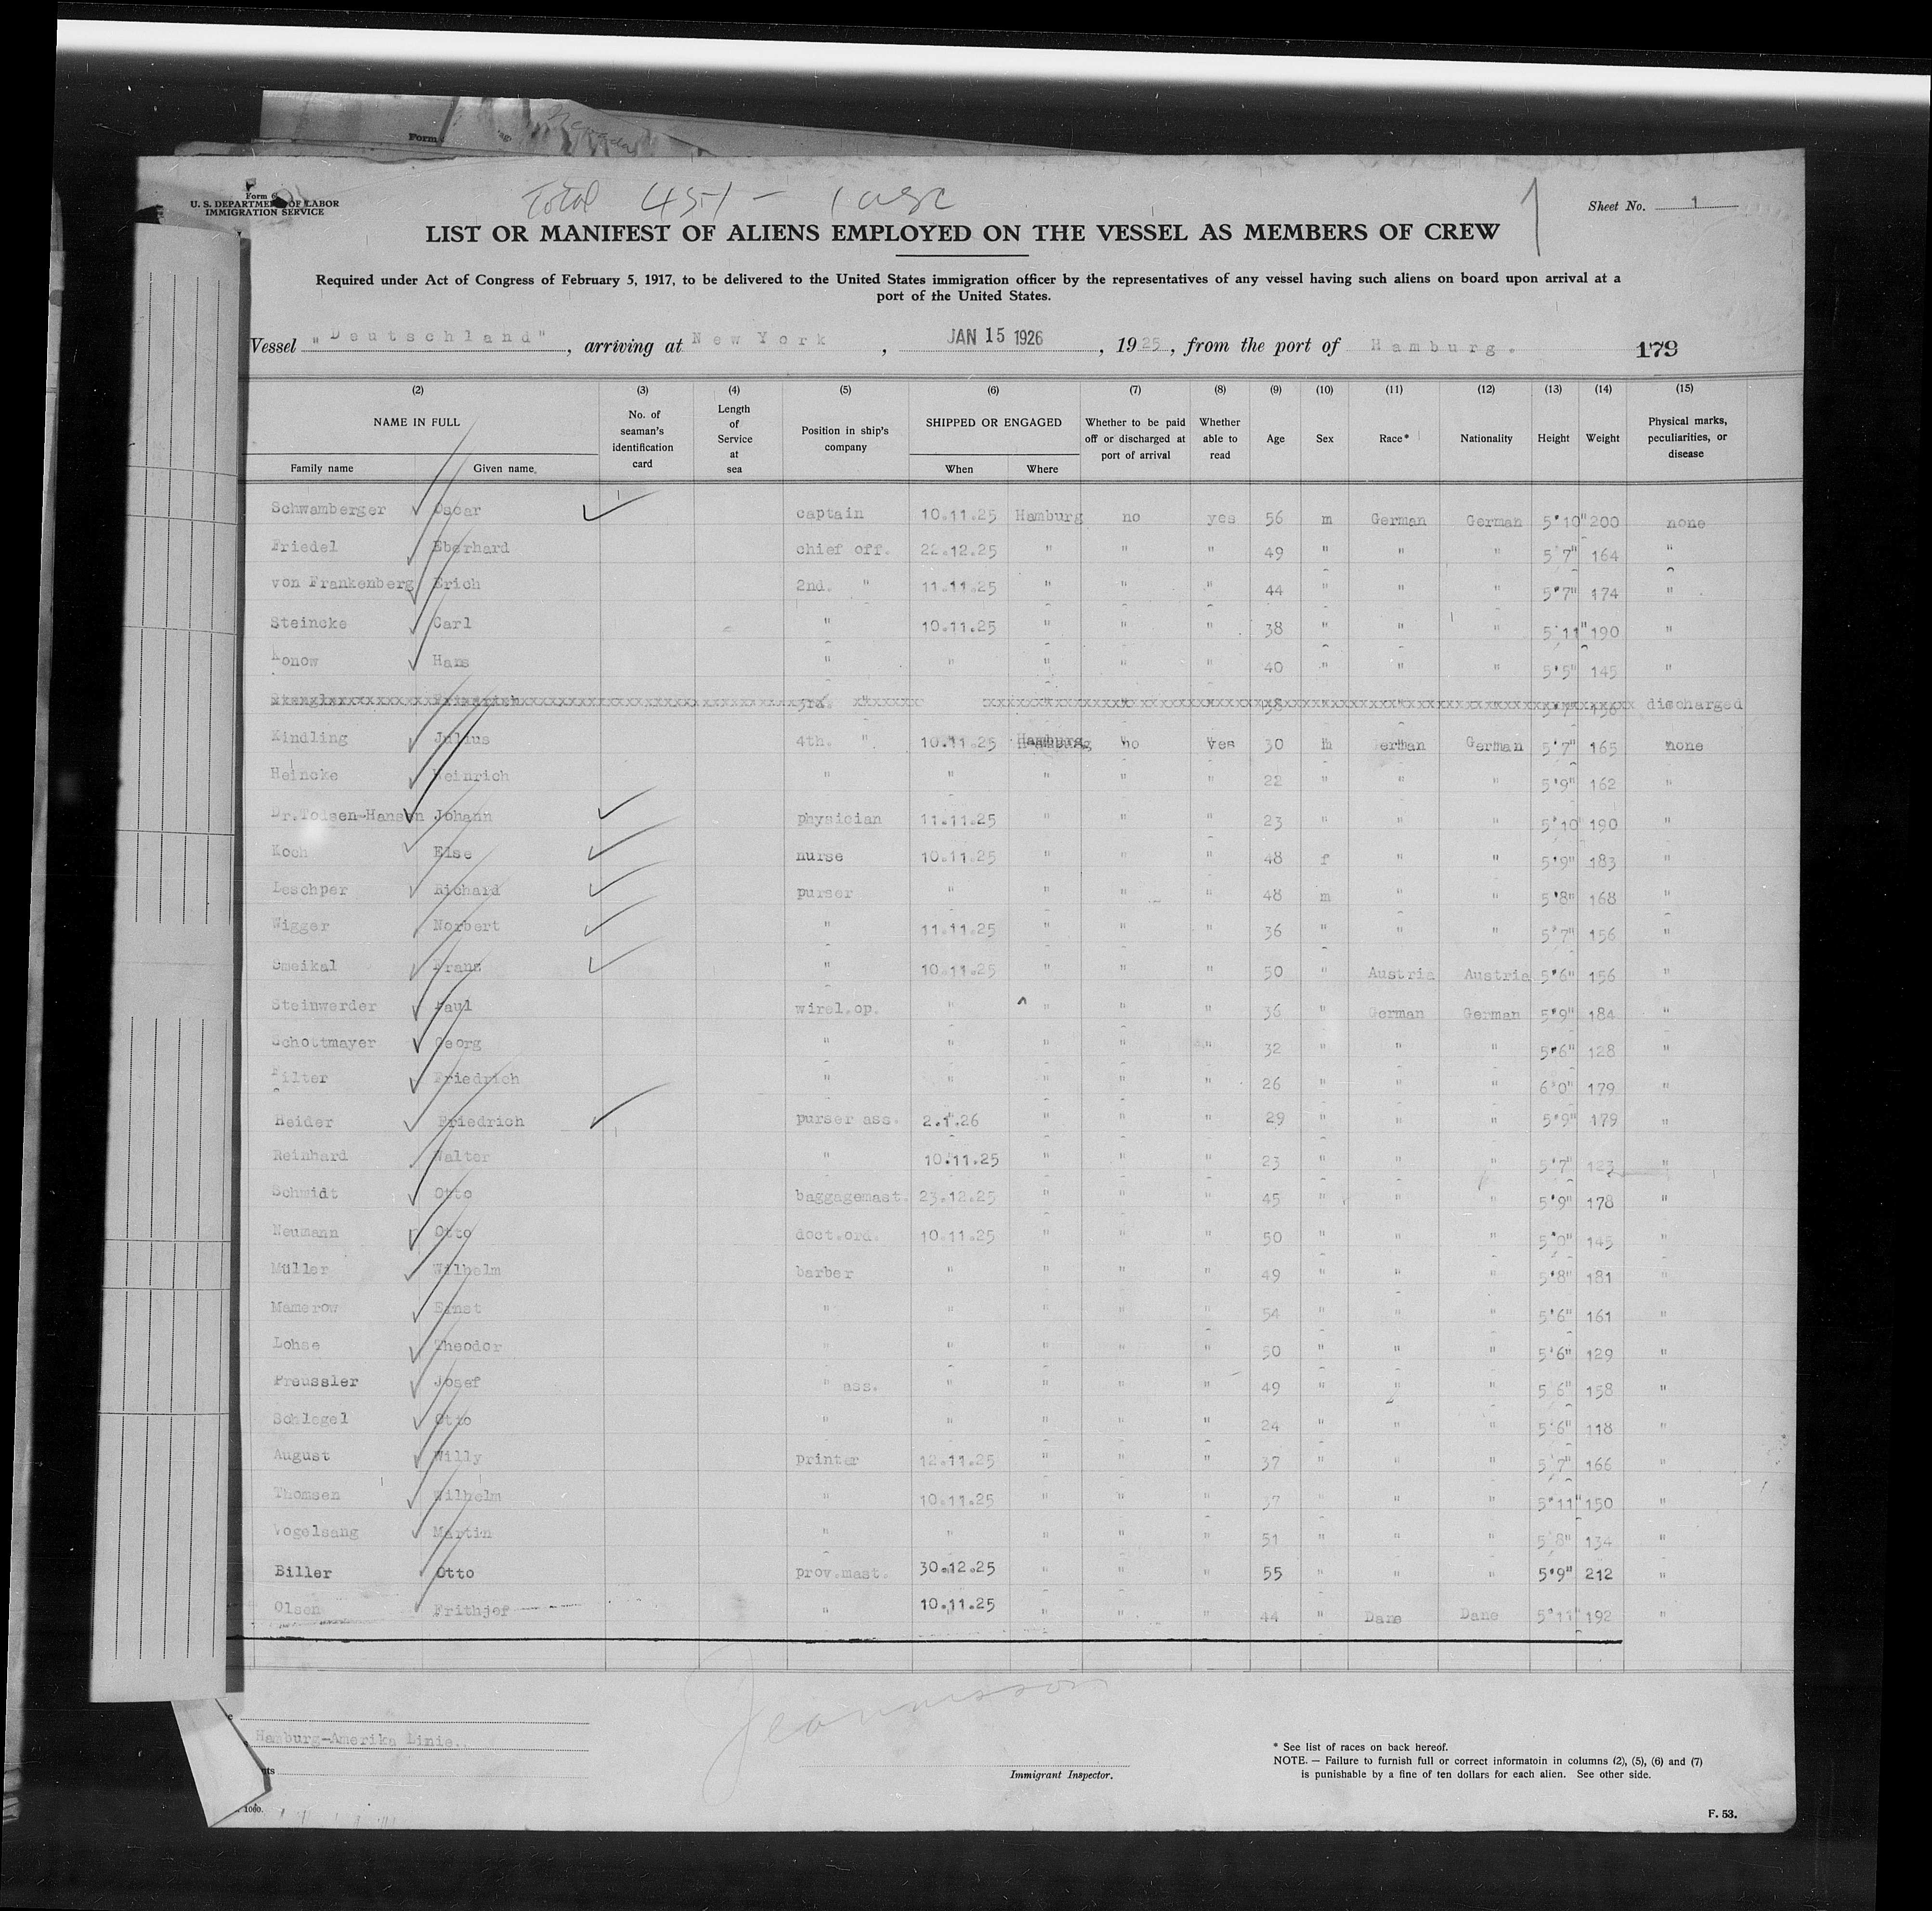 Form
Form 6
U. S. DEPARTMENT OF LABOR
IMMIGRATION SERVICE
Total 451 - 1
Sheet No. 1
LIST OR MANIFEST OF ALIENS EMPLOYED ON THE VESSEL AS MEMBERS OF CREW
Required under Act of Congress of February 5, 1917, to be delivered to the United States immigration officer by the representatives of any vessel having such aliens on board upon arrival at a
port of the United States.
Vessel "Deutschland", arriving at New York, JAN 15 1926, 1925, from the port of Hamburg. 179
(2) (3) (4) (5) (6) (7) (8) (9) (10) (11) (12) (13) (14) (15)
NAME IN FULL No. of seaman's identification card Length of Service at sea Position in ship's company SHIPPED OR ENGAGED Whether to be paid off or discharged at port of arrival Whether able to read Age Sex Race* Nationality Height Weight Physical marks, peculiarities, or disease
Family name Given name When Where
Schwamberger Oscar captain 10.11.25 Hamburg no yes 56 m German German 5'10" 200 none
Friedel Eberhard chief off. 22.12.25 " " " 49 " " " 5'7" 164 "
von Frankenberg Erich 2nd. " 11.11.25 " " " 44 " " " 5'7" 174 "
Steincke Carl " 10.11.25 " " " 38 " " " 5'11" 190 "
Konow Hans " " " " " 40 " " " 5'5" 145 "
Friedrich 3rd. " " " 38 " " 5'7" 156 discharged
Kindling Julius 4th. " 10.11.25 Hamburg no yes 30 m German German 5'7" 165 none
Heincke Heinrich " " " " " 22 " " " 5'9" 162 "
Dr.Tolsen-Hansen Johann physician 11.11.25 " " " 23 " " " 5'10" 190 "
Koch Else nurse 10.11.25 " " " 48 f " " 5'9" 183 "
Leschper Richard purser " " " " 48 m " " 5'8" 168 "
Wigger Norbert " 11.11.25 " " " 36 " " " 5'7" 156 "
Smeikal Franz " 10.11.25 " " " 50 " Austria Austria 5'6" 156 "
Steinwerder Paul wirel.op. " " " " 36 " German German 5'9" 184 "
Schottmayer Georg " " " " " 32 " " " 5'6" 128 "
Filter Friedrich " " " " " 26 " " " 6'0" 179 "
Heider Friedrich purser ass. 2.1.26 " " " 29 " " " 5'9" 179 "
Reinhard Walter " 10.11.25 " " " 23 " " " 5'7" 123 "
Schmidt Otto baggagemast. 23.12.25 " " " 45 " " " 5'9" 178 "
Neumann Otto doct.ord. 10.11.25 " " " 50 " " " 5'0" 145 "
Müller Wilhelm barber " " " " 49 " " " 5'8" 181 "
Mamerow Ernst " " " " " 54 " " " 5'6" 161 "
Lohse Theodor " " " " " 50 " " " 5'6" 129 "
Preussler Josef " ass. " " " " 49 " " " 5'6" 158 "
Schlegel Otto " " " " " 24 " " " 5'6" 118 "
August Willy printer 12.11.25 " " " 37 " " " 5'7" 166 "
Thomsen Wilhelm " 10.11.25 " " " 37 " " " 5'11" 150 "
Vogelsang Martin " " " " " 51 " " " 5'8" 134 "
Biller Otto prov.mast. 30.12.25 " " " 55 " " " 5'9" 212 "
Olsen Frithjof " 10.11.25 " " " 44 " Dane Dane 5'11" 192 "
Hamburg-Amerika Linie.
Immigrant Inspector.
* See list of races on back hereof.
NOTE. — Failure to furnish full or correct informatoin in columns (2), (5), (6) and (7)
is punishable by a fine of ten dollars for each alien. See other side.
1060.
F. 53.